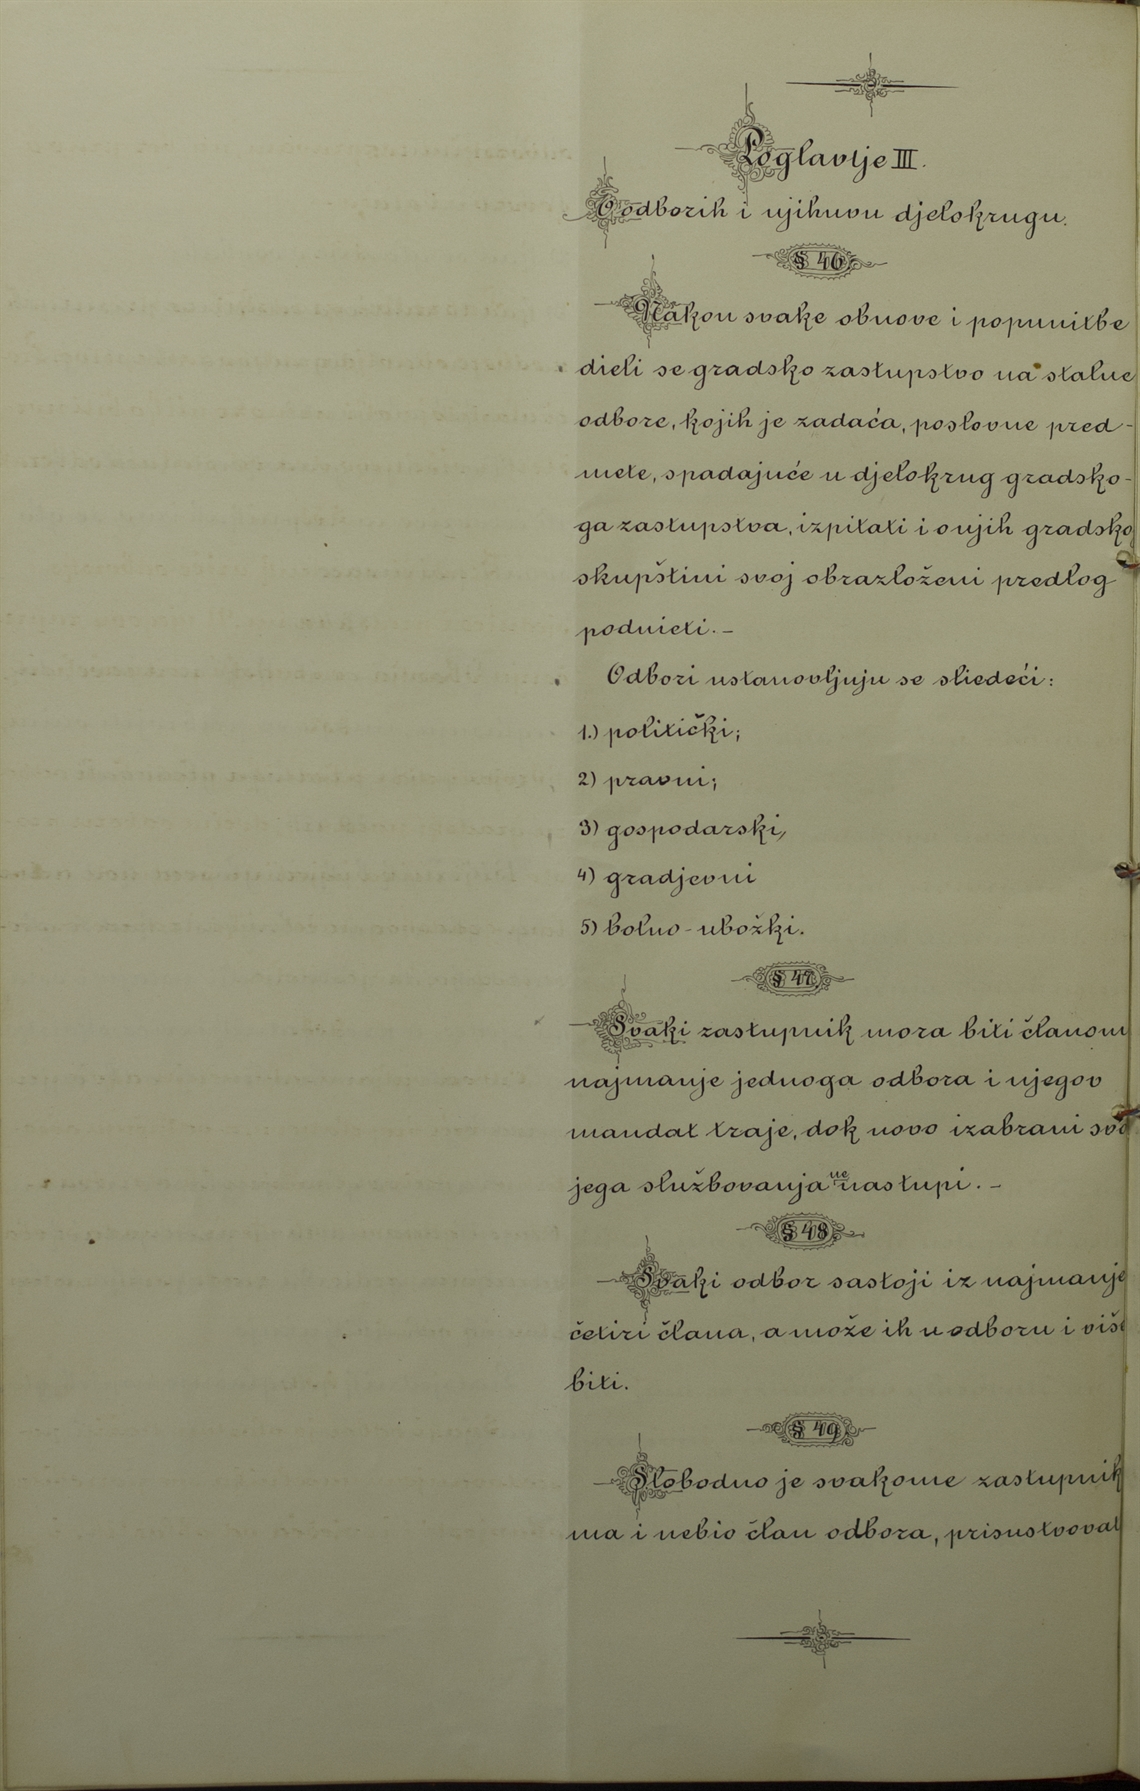 Poglavlje III.
O odborih i njihovu djelokrugu.
§ 46.
Nakon svake obnove i popunitbe
dieli se gradsko zastupstvo na stalne
odbore, kojih je zadaća, poslovne pred-
mete, spadajuće u djelokrug gradsko-
ga zastupstva, izpitati i o njih gradsko
skupštini svoj obrazloženi predlog
podnieti. -
Odbori ustanovljuju se sliedeći:
1.) politički;
2) pravni;
3) gospodarski,
4) gradjevni
5) bolno-ubožki.
§ 47.
Svaki zastupnik mora biti članom
najmanje jednoga odbora i njegov
mandat traje, dok novo izabrani svo
jega službovanja ne nastupi. -
§ 48.
Svaki odbor sastoji iz najmanje
četiri člana, a može ih u odboru i više
biti.
§ 49.
Slobodno je svakome zastupnik
ma i nebio član odbora, prisustvovat